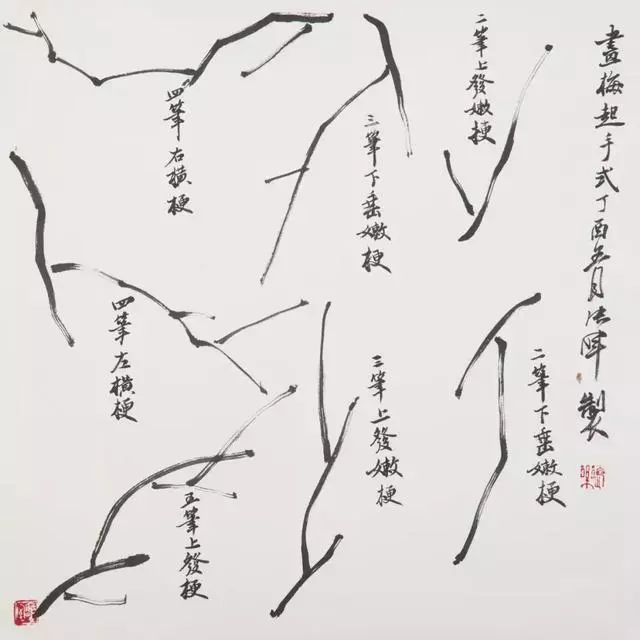 畫梅起手式丁酉五月法晖製
二筆上發嫩梗
三筆下垂嫩梗
四筆右横梗
二筆下垂嫩梗
三筆上發嫩梗
四筆左横梗
五筆上發梗